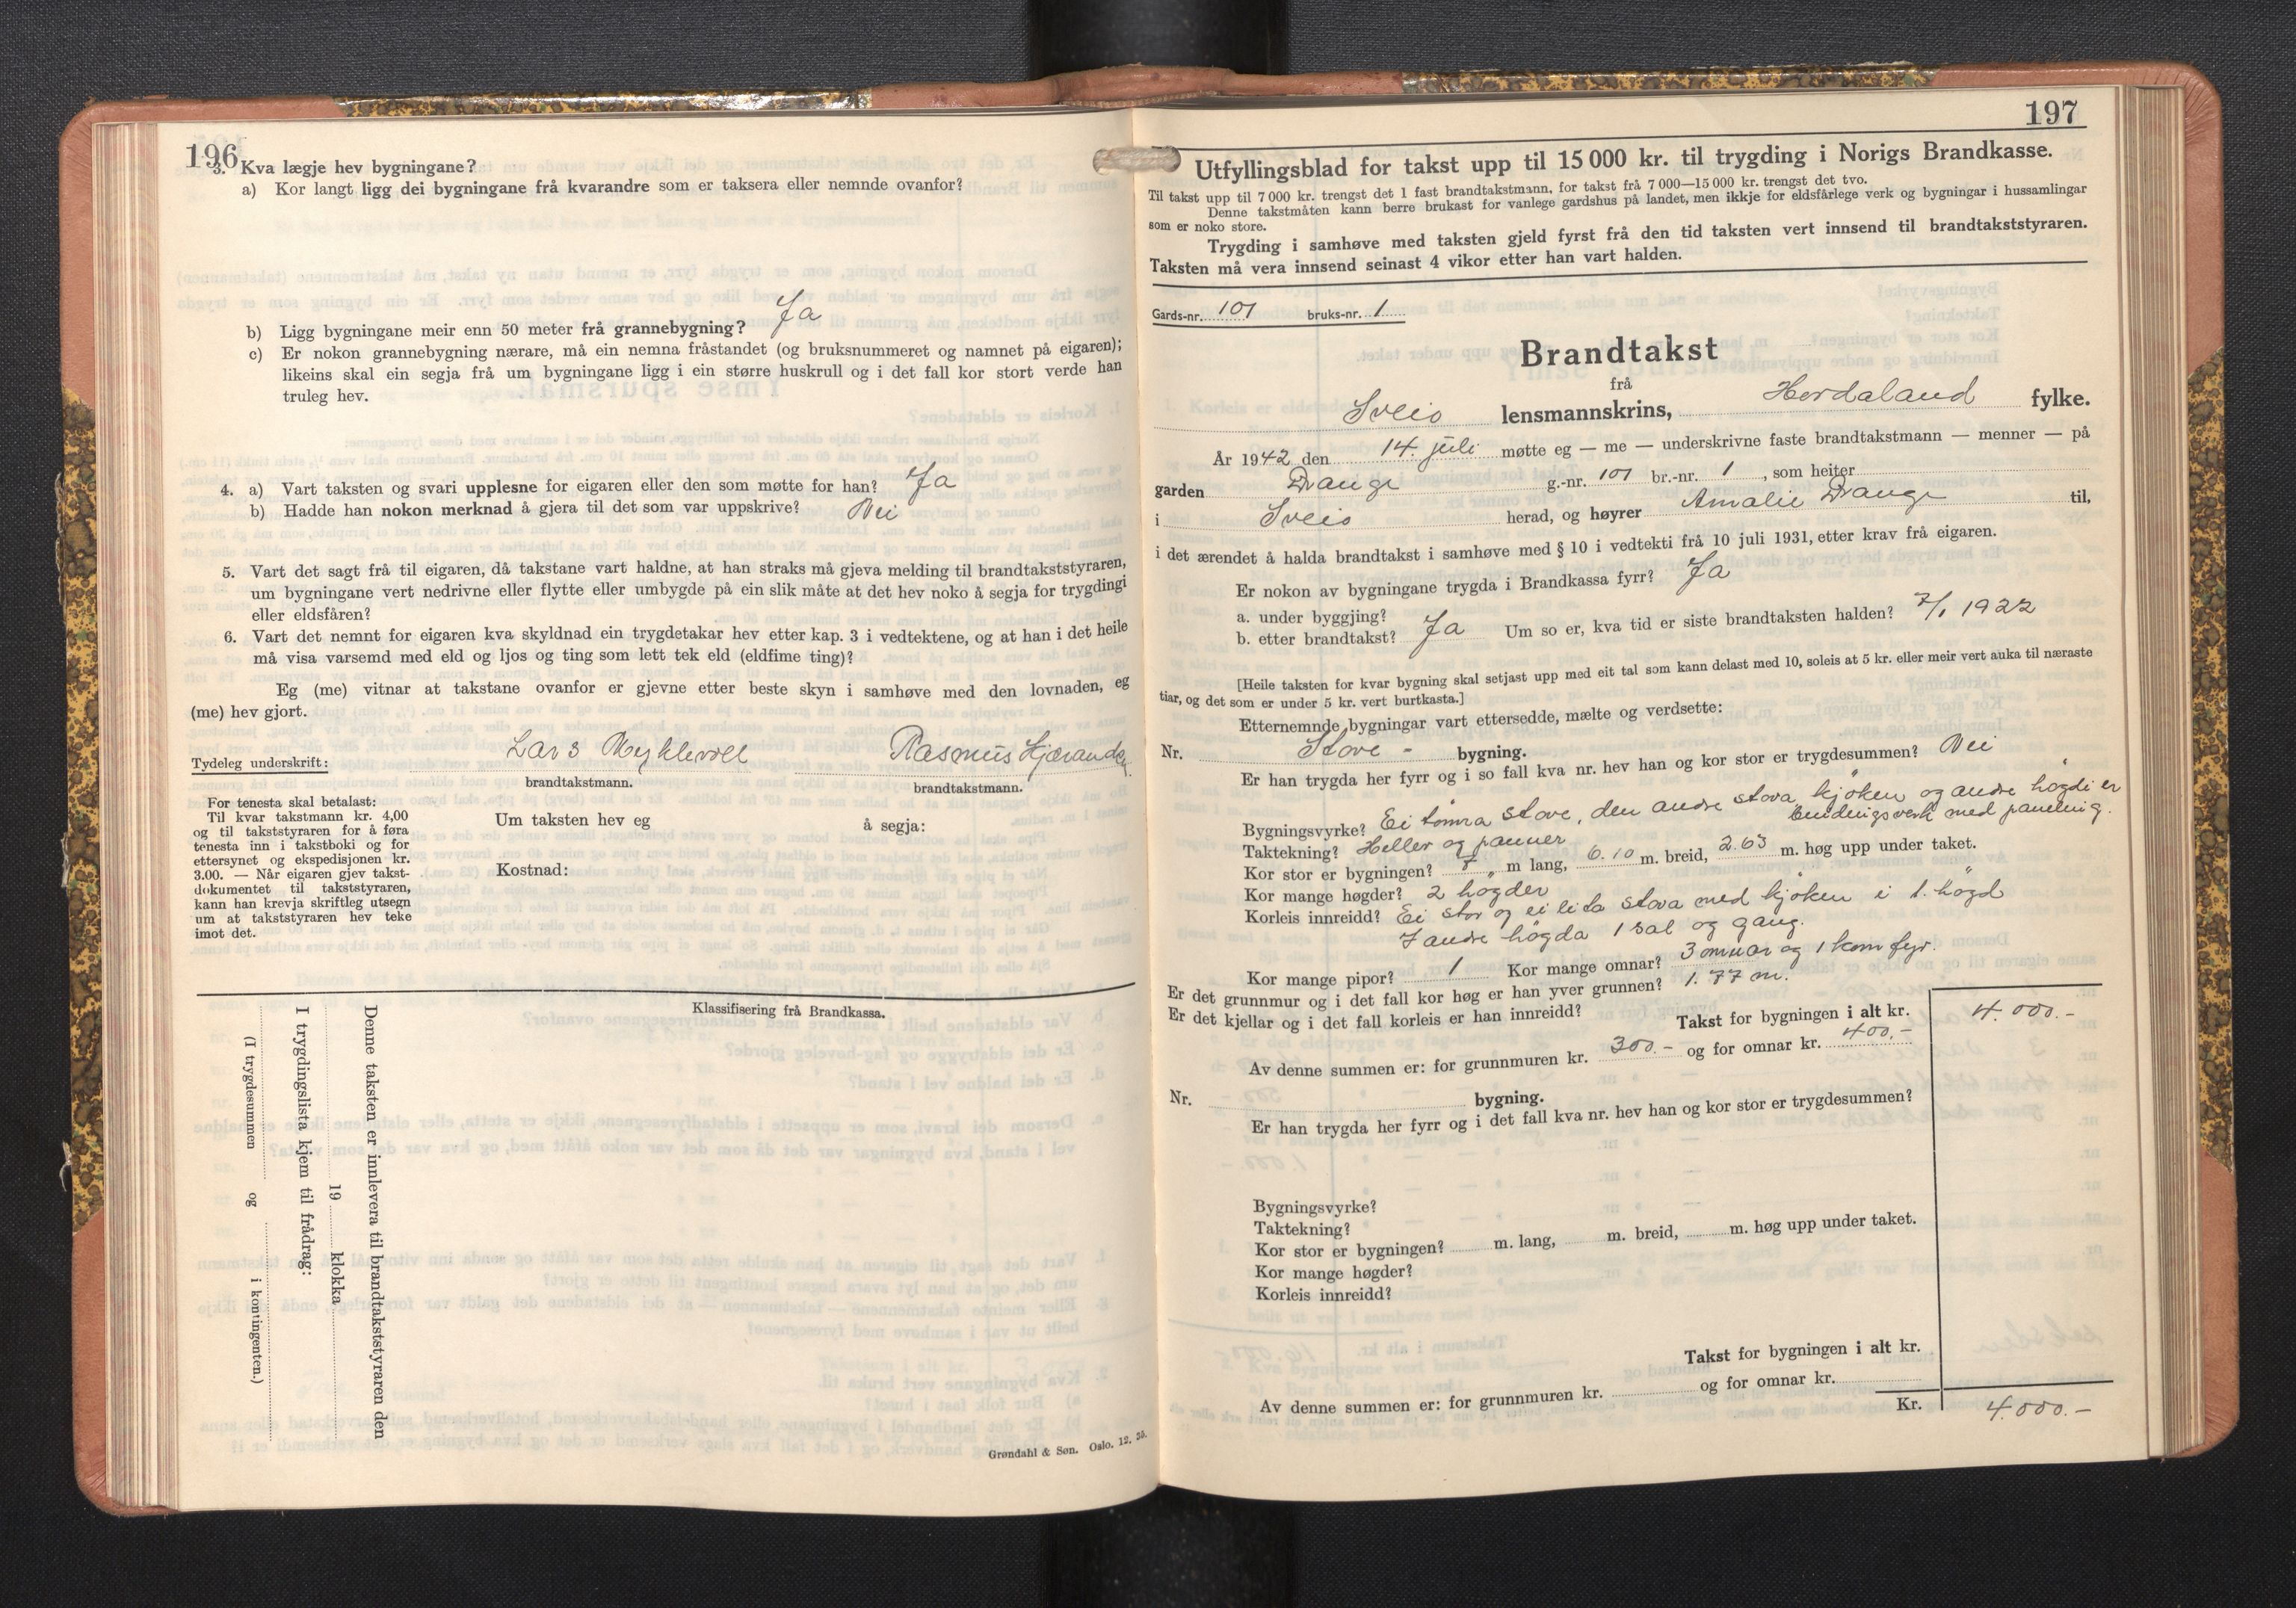 196
3. Kva lægje hev bygningane?
a) Kor langt ligg dei bygningane frå kvarandre som er taksera eller nemnde ovanfor?
b) Ligg bygningane meir enn 50 meter frå grannebygning? Ja
c) Er nokon grannebygning nærare, må ein nemna fråstandet (og bruksnummeret og namnet på eigaren);
likeins skal ein segja frå um bygningane ligg i ein større huskrull og i det fall kor stort verde han
truleg hev.
4. a) Vart taksten og svari upplesne for eigaren eller den som møtte for han? Ja
b) Hadde han nokon merknad å gjera til det som var uppskrive? Nei
5. Vart det sagt frå til eigaren, då takstane vart haldne, at han straks må gjeva melding til brandtakststyraren,
um bygningane vert nedrivne eller flytte eller umbygde på ein slik måte at det hev noko å segja for trygdingi
eller eldsfåren?
6. Vart det nemnt for eigaren kva skyldnad ein trygdetakar hev etter kap. 3 i vedtektene, og at han i det heile
må visa varsemd med eld og ljos og ting som lett tek eld (eldfime ting)?
Eg (me) vitnar at takstane ovanfor er gjevne etter beste skyn i samhøve med den lovnaden, eg
(me) hev gjort.
Tydeleg underskrift: Lars Rasmus
brandtakstmann. brandtakstmann.
For tenesta skal betalast:
Til kvar takstmann kr. 4,00
og til takststyraren for å føra
tenesta inn i takstboki og for
ettersynet og ekspedisjonen kr.
3.00. — Når eigaren gjev takst-
dokumentet til takststyraren,
kann han krevja skriftleg utsegn
um at takststyraren hev teke
imot det.
Um taksten hev eg å segja:
Kostnad:
Klassifisering frå Brandkassa.
Denne taksten er innlevera til brandtakststyraren den
19 klokka
I trygdingslista kjem til frådrag:
(I trygdesummen og i kontingenten.)
Grøndahl & Søn. Oslo. 12. 35.
197
Utfyllingsblad for takst upp til 15 000 kr. til trygding i Norigs Brandkasse.
Til takst upp til 7 000 kr. trengst det 1 fast brandtakstmann, for takst frå 7 000—15 000 kr. trengst det tvo.
Denne takstmåten kann berre brukast for vanlege gardshus på landet, men ikkje for eldsfårlege verk og bygningar i hussamlingar
som er noko store.
Trygding i samhøve med taksten gjeld fyrst frå den tid taksten vert innsend til brandtakststyraren.
Taksten må vera innsend seinast 4 vikor etter han vart halden.
Gards-nr. 101 bruks-nr. 1
Brandtakst
frå
Sveio lensmannskrins, Hordaland fylke.
År 1942 den 14. juli møtte eg — me — underskrivne faste brandtakstmann — menner — på
garden Drange g.-nr. 101 br.-nr. 1, som heiter
i Sveio herad, og høyrer Amalie Drange til,
i det ærendet å halda brandtakst i samhøve med § 10 i vedtekti frå 10 juli 1931, etter krav frå eigaren.
Er nokon av bygningane trygda i Brandkassa fyrr? Ja
a. under byggjing?
b. etter brandtakst? Ja Um so er, kva tid er siste brandtaksten halden? 7/1 1922
[Heile taksten for kvar bygning skal setjast upp med eit tal som kann delast med 10, soleis at 5 kr. eller meir vert auka til næraste
tiar, og det som er under 5 kr. vert burtkasta.]
Etternemnde bygningar vart ettersedde, mælte og verdsette:
Nr. Stove - bygning.
Er han trygda her fyrr og i so fall kva nr. hev han og kor stor er trygdesummen? Nei
Bygningsvyrke? Ei tømra stove, den andre stova kjøken og andre høgdi er
bindingsverk med paneling.
Taktekning? Heller og panner
Kor stor er bygningen? 7 m lang, 6.10 m. breid, 2.63 m. høg upp under taket.
Kor mange høgder? 2 høgder
Korleis innreidd? Ei stor og ei lita stova med kjøken i 1. høgd
I andre høgda 1 sal og gang.
Kor mange pipor? 1 Kor mange omnar? 3 omnar og 1 komfyr.
Er det grunnmur og i det fall kor høg er han yver grunnen? 1.77 m.
Er det kjellar og i det fall korleis er han innreidd?
Takst for bygningen i alt kr. 4.000.-
Av denne summen er: for grunnmuren kr. 300.- og for omnar kr. 400.-
Nr. bygning.
Er han trygda her fyrr og i det fall kva nr. hev han og kor stor er trygdesummen?
Bygningsvyrke?
Taktekning?
Kor stor er bygningen? m. lang, m. breid, m. høg upp under taket.
Kor mange høgder?
Korleis innreidd?
Takst for bygningen i alt kr.
Av denne summen er: for grunnmuren kr. og for omnar kr.
Kr. 4.000.-